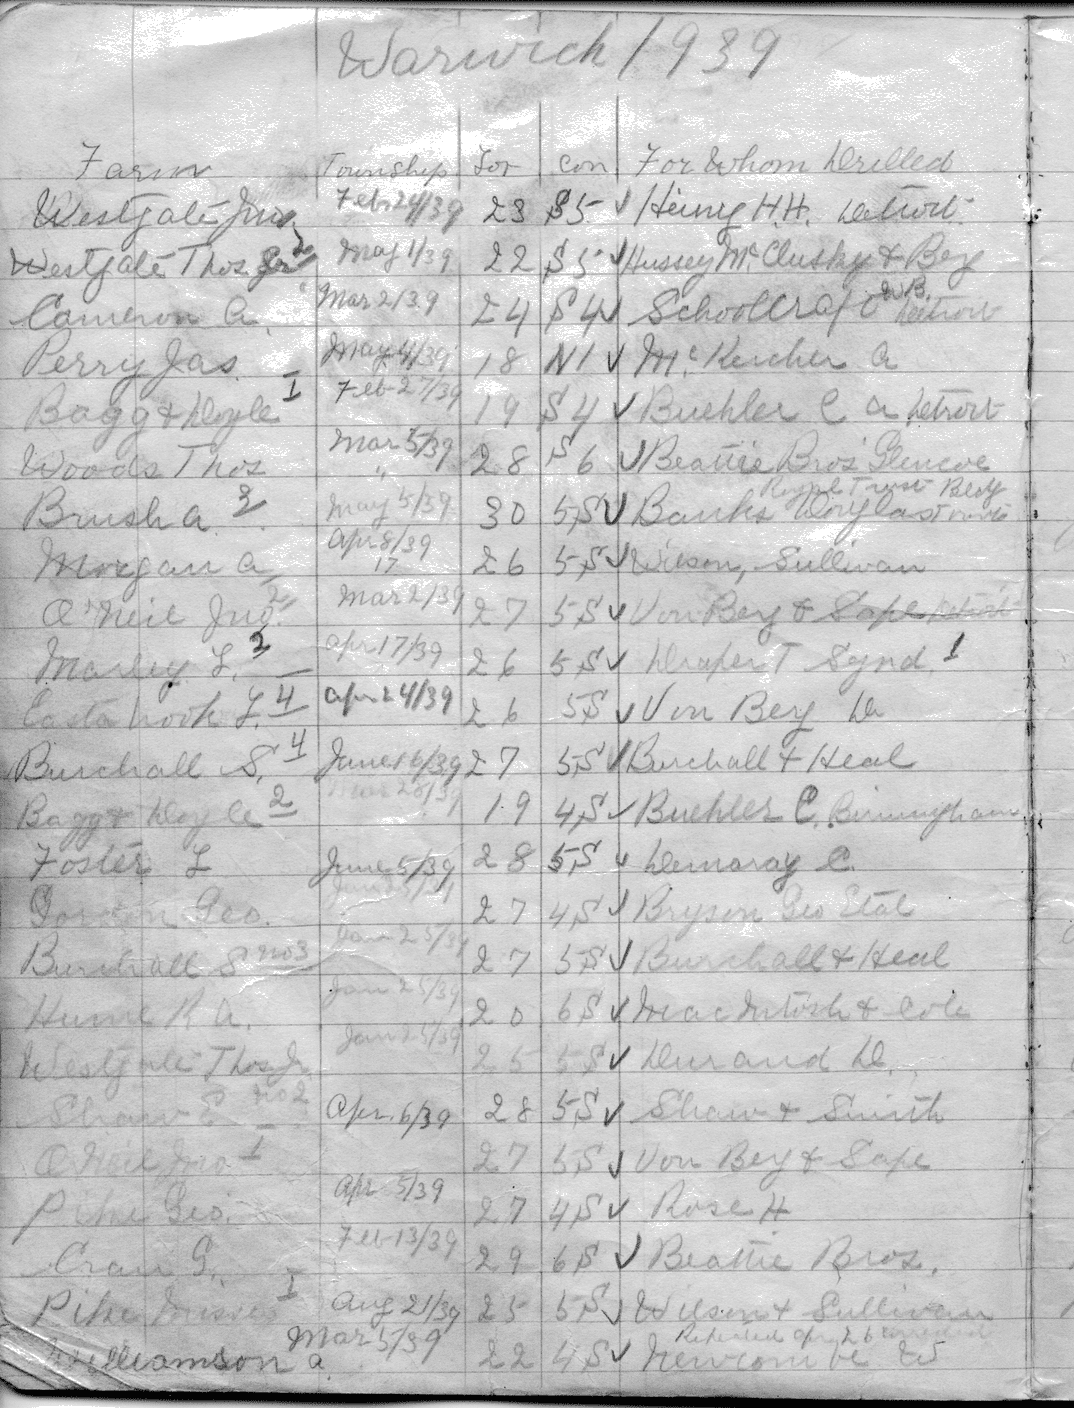 Warwick 1939
Farm Township Lot Con For Whom Drilled
Westgate Jno. Feb 24/39 23 S5 ✓ Henry H.H. Detroit
Westgate Thos Jr 2 May 1/39 22 S5 ✓ Hussey McClusky & Bey
Cameron A. Mar 2/39 24 S4 ✓ Schoolcraft W.B. Detroit
Perry Jas. May 4/39 18 N1 ✓ McKercher A
Bagg & Doyle 1 Feb 27/39 19 S4 ✓ Buehler C a Detroit
Woods Thos Mar 5/39 28 S6 ✓ Beattie Bros Glencoe
Brush A. 3 May 5/39 30 5S ✓ Banks Royal Trust Bldg
Morgan A Apr 8/39 17 26 5S ✓ Wilson, Sullivan
O'Neil Jno. 2 Mar 2/39 27 5S ✓ Von Bey & Sape Detroit
Morley L. 3 Apr 17/39 26 5S ✓ Draper T Synd. 1
L. 4 Apr 24/39 26 5S ✓ Von Bey D
Burchall S. 4 June 16/39 27 5S ✓ Burchall & Heal
Bagg & Doyle 2 Mar 28/39 19 4S ✓ Buehler C. Birmingham
Foster L June 5/39 28 5S ✓ Demaray C.
Gordon Geo. 27 4S ✓ Bryson Geo Etal
Burchall S no 3 Jan 25/39 27 5S ✓ Burchall & Heal
Hume R A. Jan 25/39 20 6S ✓ MacIntosh & Cole
Westgate Thos Jr. Jan 25/39 25 5S ✓ Durand D.
Shaw E no 2 Apr. 6/39 28 5S ✓ Shaw & Smith
O'Neil Jno. 1 27 5S ✓ Von Bey & Sape
Pike Geo. Apr 5/39 27 4S ✓ Rose H
Cran G. Feb 13/39 29 6S ✓ Beattie Bros.
Pike 1 Aug 21/39 25 5S ✓ Wilson & Sullivan
Williamson A Mar 5/39 22 4S ✓ Newcombe W